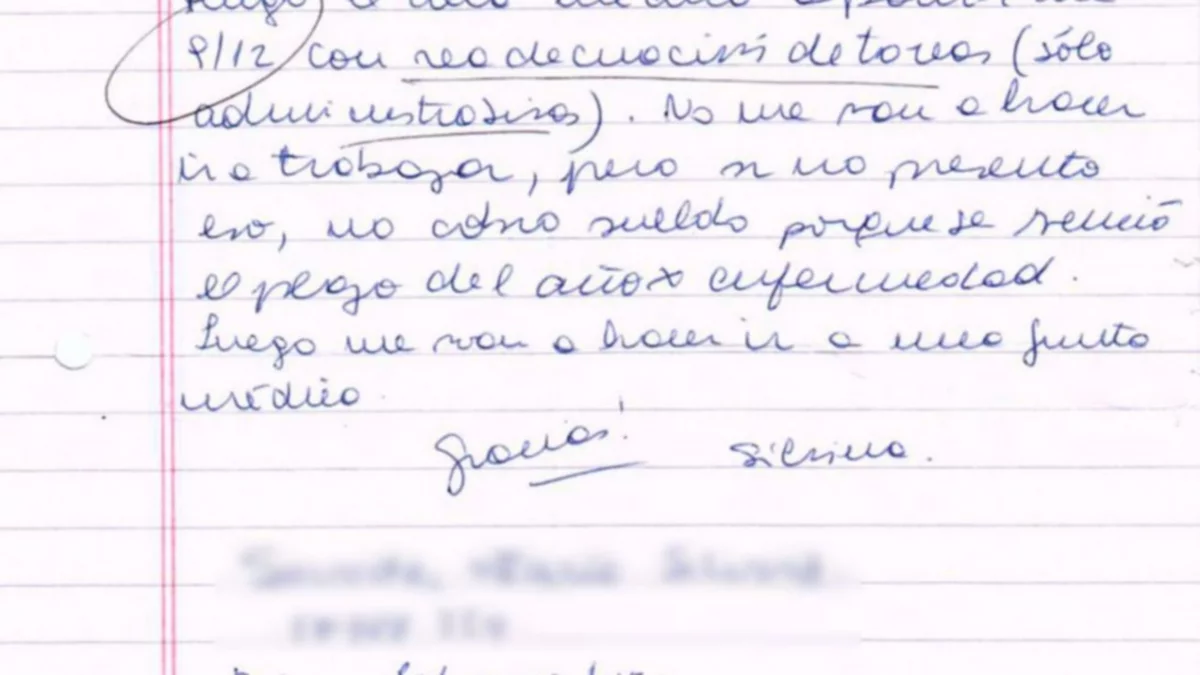 9/12 con readecuación de tareas (sólo
administrativas). No me van a hacer
ir a trabajar, pero si no presento
eso, no cobro sueldo porque se venció
el plazo del año x enfermedad.
Luego me van a hacer ir a una junta
médica
Gracias! Silvina.